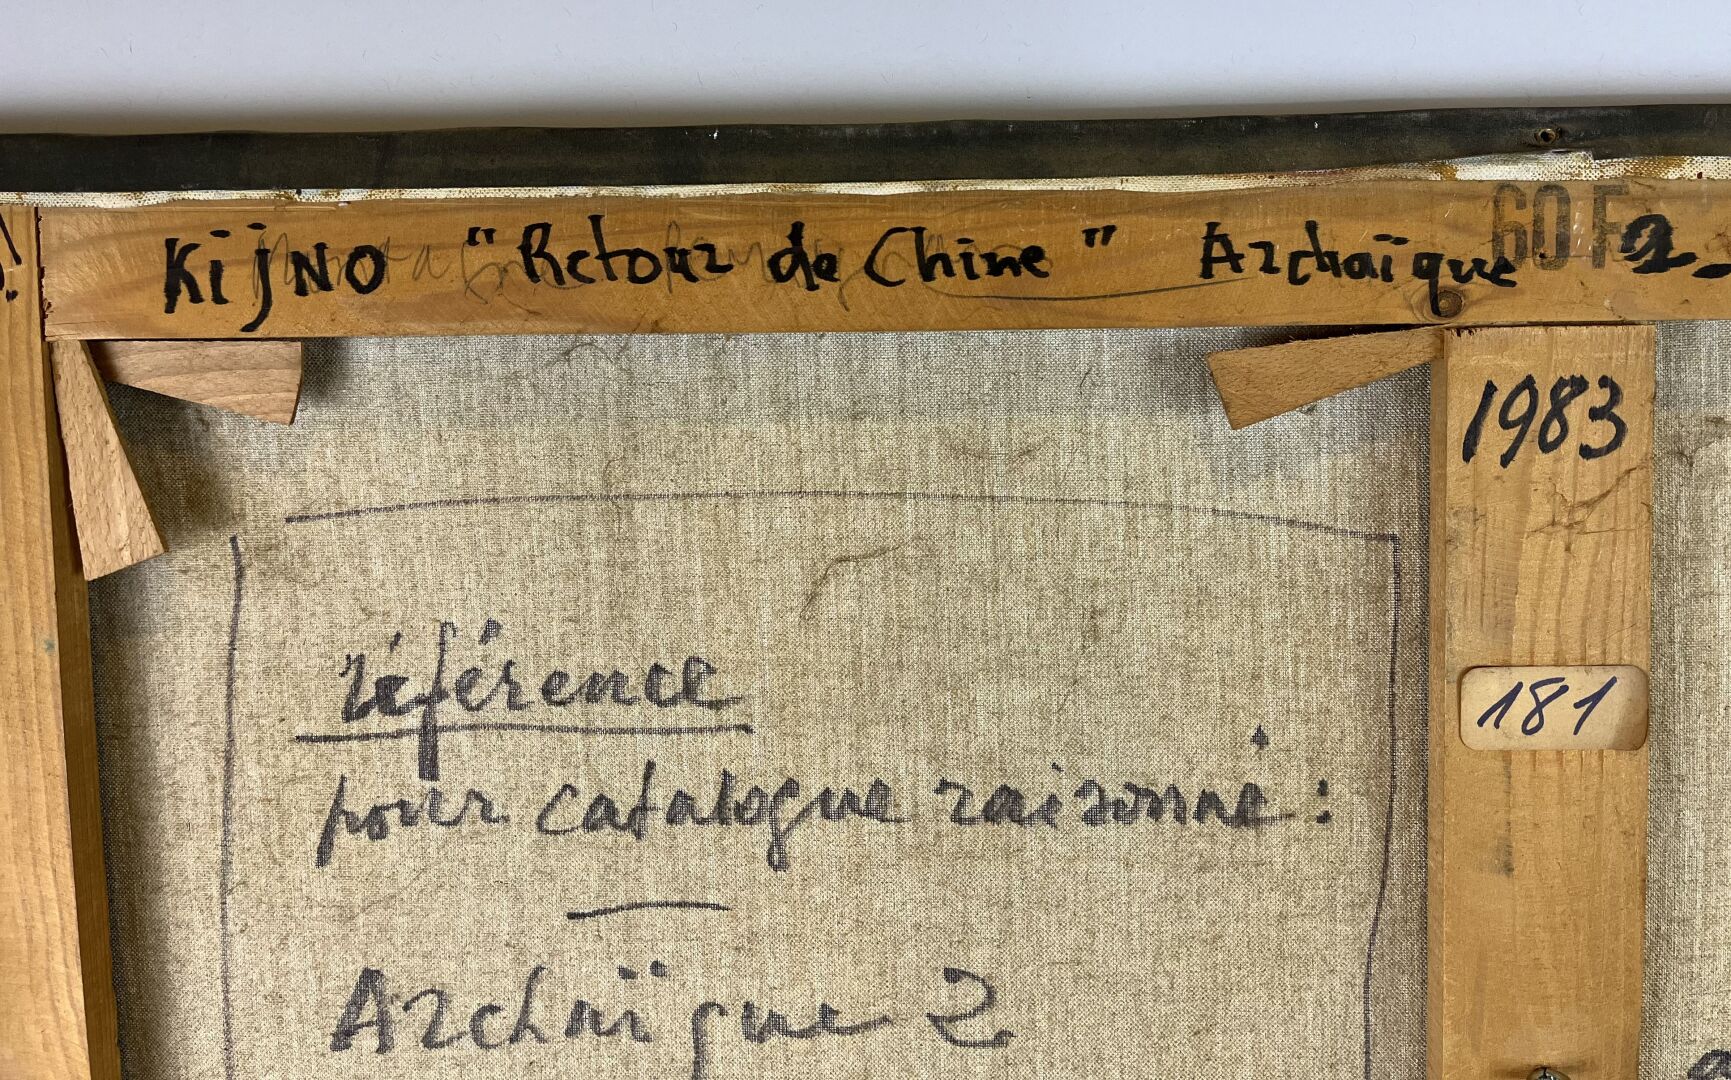 Kijno "Retour de Chine" Archaïque 2
60 F
1983
181
référence
pour catalogue raisonné :
Archaïque 2